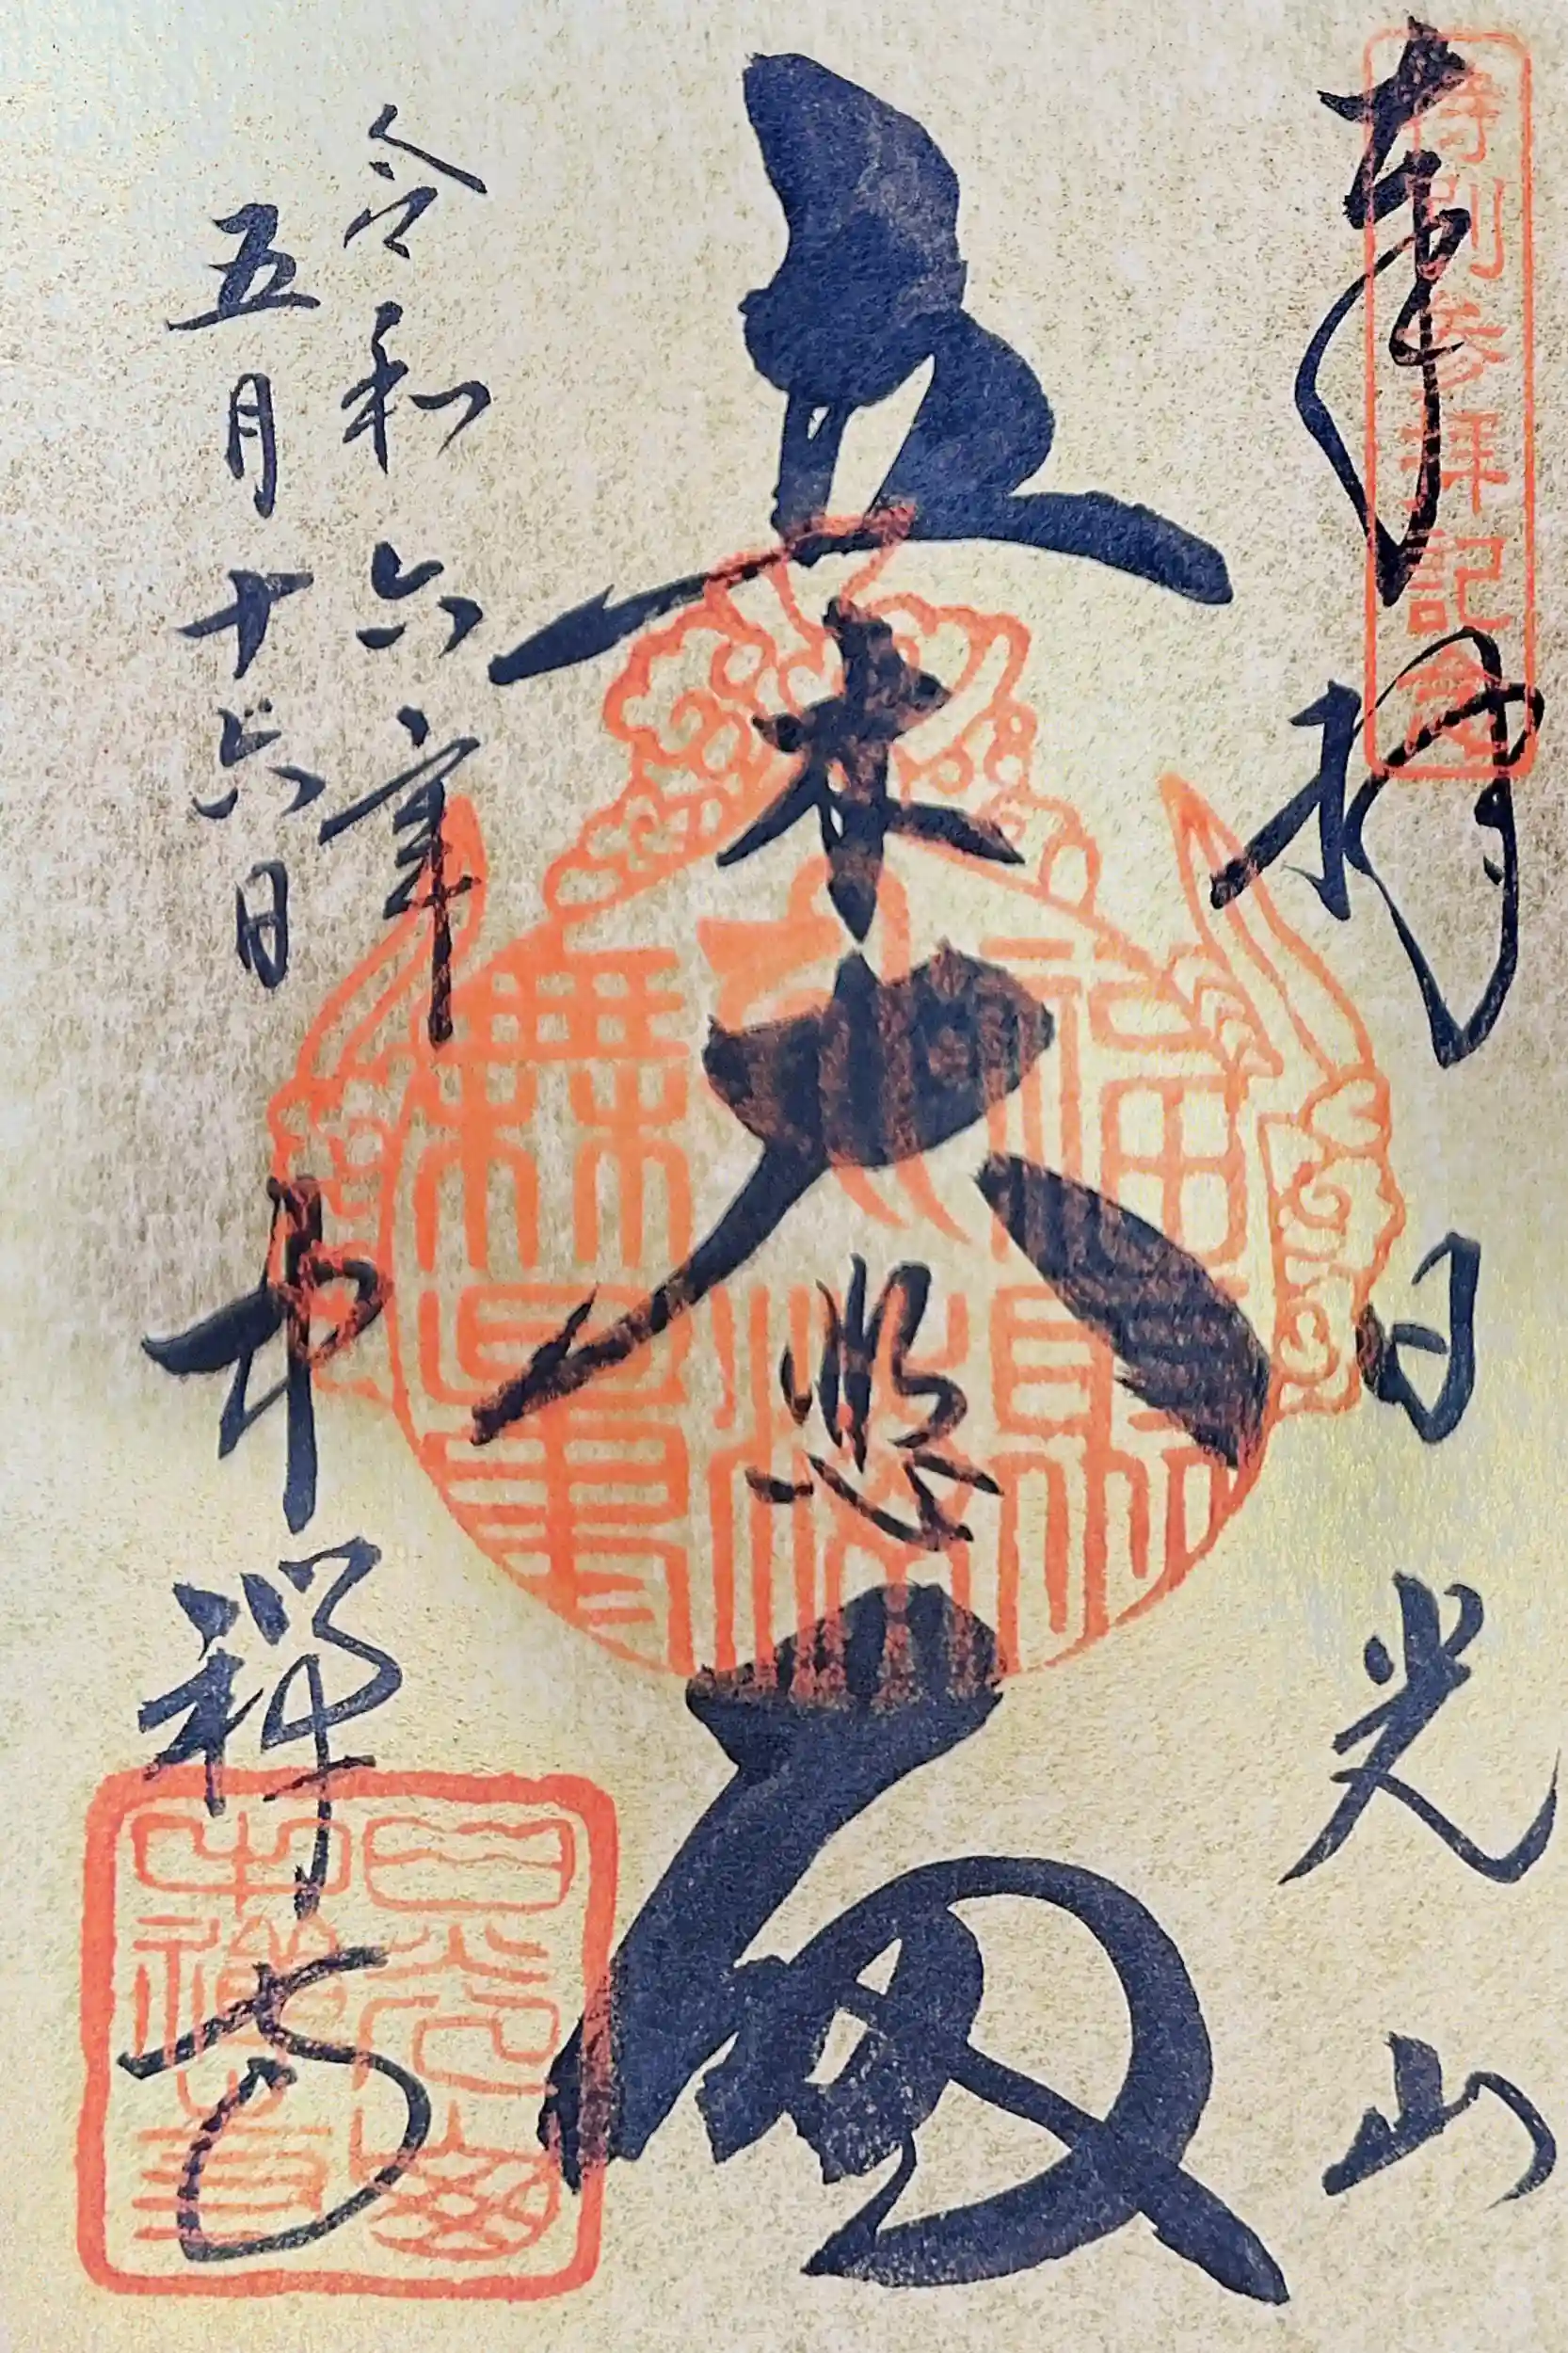 奉拝 日光山
特別参拝記念
立木大悲殿
福聚海無量
令和六年
五月十六日
中禅寺
日光山中禅寺章